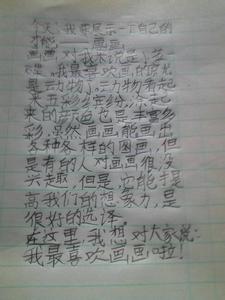 今天,我来展示一下自己的
——画画
画画对我来说是,多
我最喜欢画的时候
是动物了,动物看起
来五彩缤纷,涂起
来的颜色也是丰富多
彩,虽然画画能画出
各种各样的图画,但
是有的人对画画很没
兴趣,但是,它能提
高我们的想象力,是
很好的选泽。
在这里,我想对大家说:
我最喜欢画画啦!